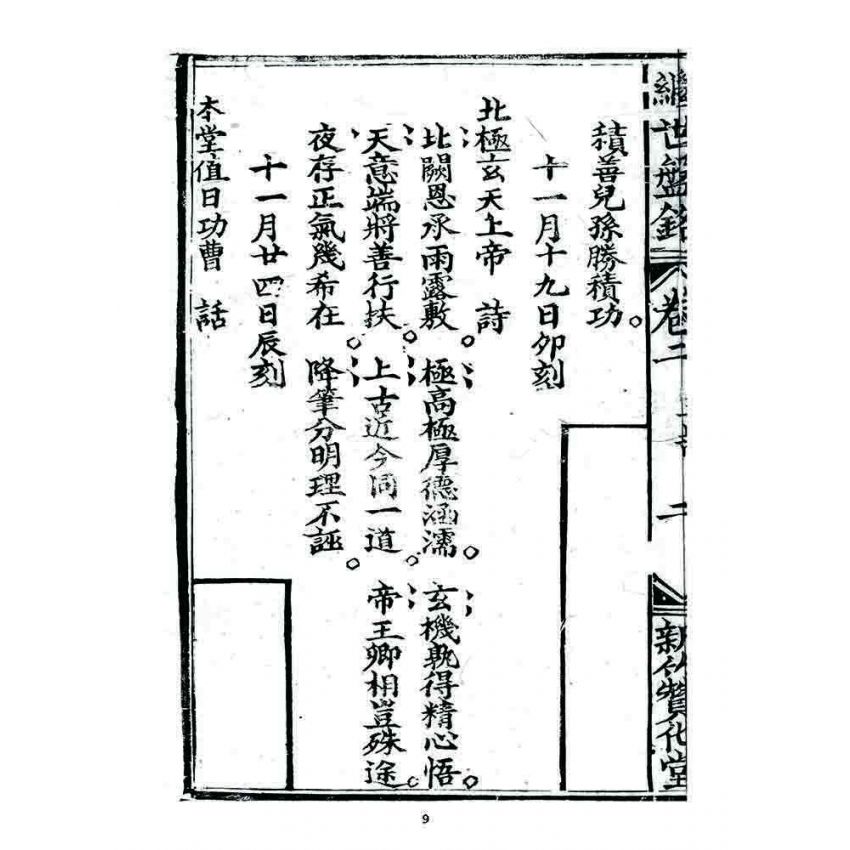 繼世盤銘 卷二 二 新竹贊化堂
積善兒孫勝積功。
十一月十九日卯刻
北極玄天上帝 詩
北闕恩承雨露敷。極高極厚德涵濡。玄機孰得精心悟。
天意端將善行扶。上古近今同一道。帝王卿相豈殊途。
夜存正氣幾希在。降筆分明理不誣。
十一月廿四日辰刻
本堂值日功曹 話
9